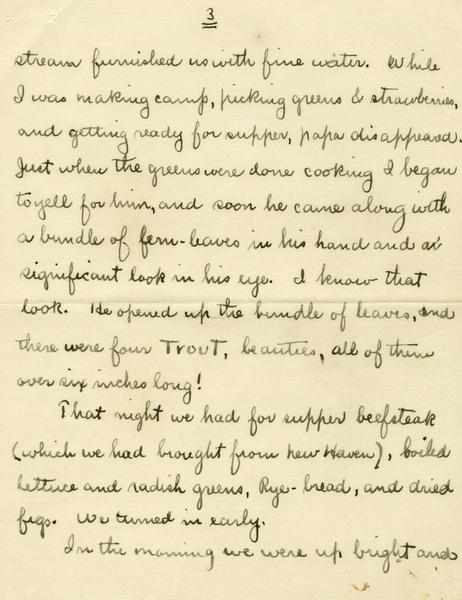 3
stream furnished us with fine water. While
I was making camp, picking greens & strawberries,
and getting ready for supper, papa disappeared.
Just when the greens were done cooking I began
to yell for him, and soon he came along with
a bundle of fern-leaves in his hand and a
significant look in his eye. I know that
look. He opened up the bundle of leaves, and
there were four TROUT, beauties, all of them
over six inches long!
That night we had for supper beefsteak
(which we had brought from New Haven), boiled
lettuce and radish greens, Rye-bread, and dried
figs. We turned in early.
In the morning we were up bright and